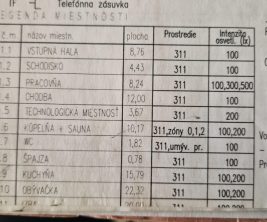 Telefónna zásuvka
LEGENDA MIESTNOSTÍ
č.m. názov miestn. plocha Prostredie Intenzita osvetl. (lx)
1.1 VSTUPNÁ HALA 8,76 311 100
1.2 SCHODISKO 4,43 311 100
1.3 PRACOVŇA 8,24 311 100,300,500
1.4 CHODBA 12,00 311 100
1.5 TECHNOLOGICKÁ MIESTNOSŤ 3,67 311 200
.6 KÚPEĽŇA + SAUNA 10,17 311,zóny 0,1,2 100,200
.7 WC 1,82 311,umýv. pr. 100
.8 ŠPAJZA 0,78 311 100
.9 KUCHYŇA 15,79 311 100,200
10 OBÝVAČKA 22,32 311 100,200